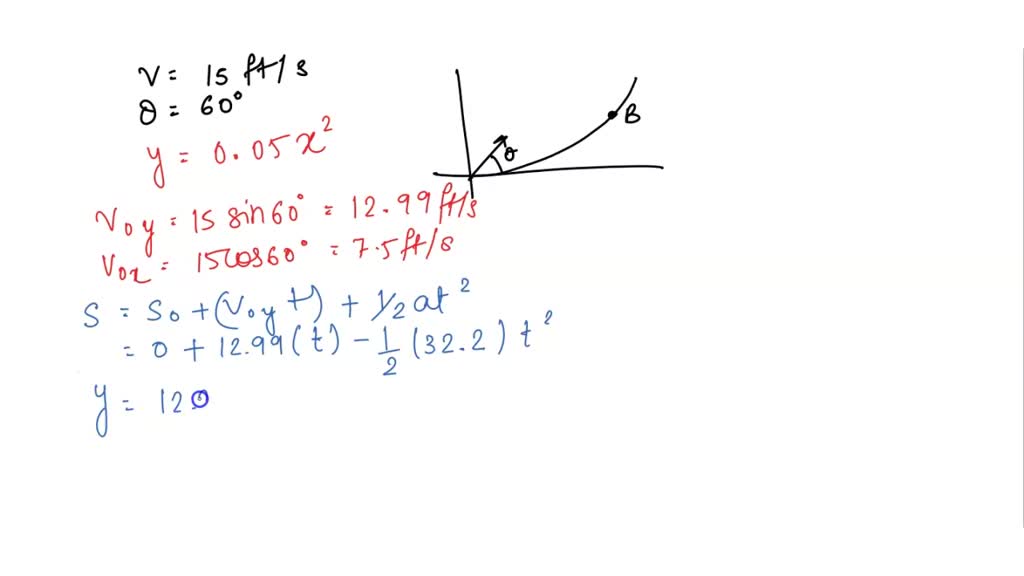 v = 15 ft/s
θ = 60°
y = 0.05x²
θ
B
V₀y = 15 sin60° = 12.99ft/s
V₀x = 15cos60° = 7.5ft/s
S = S₀ + (V₀y t) + 1/2 at²
= 0 + 12.99(t) - 1/2 (32.2) t²
y = 120